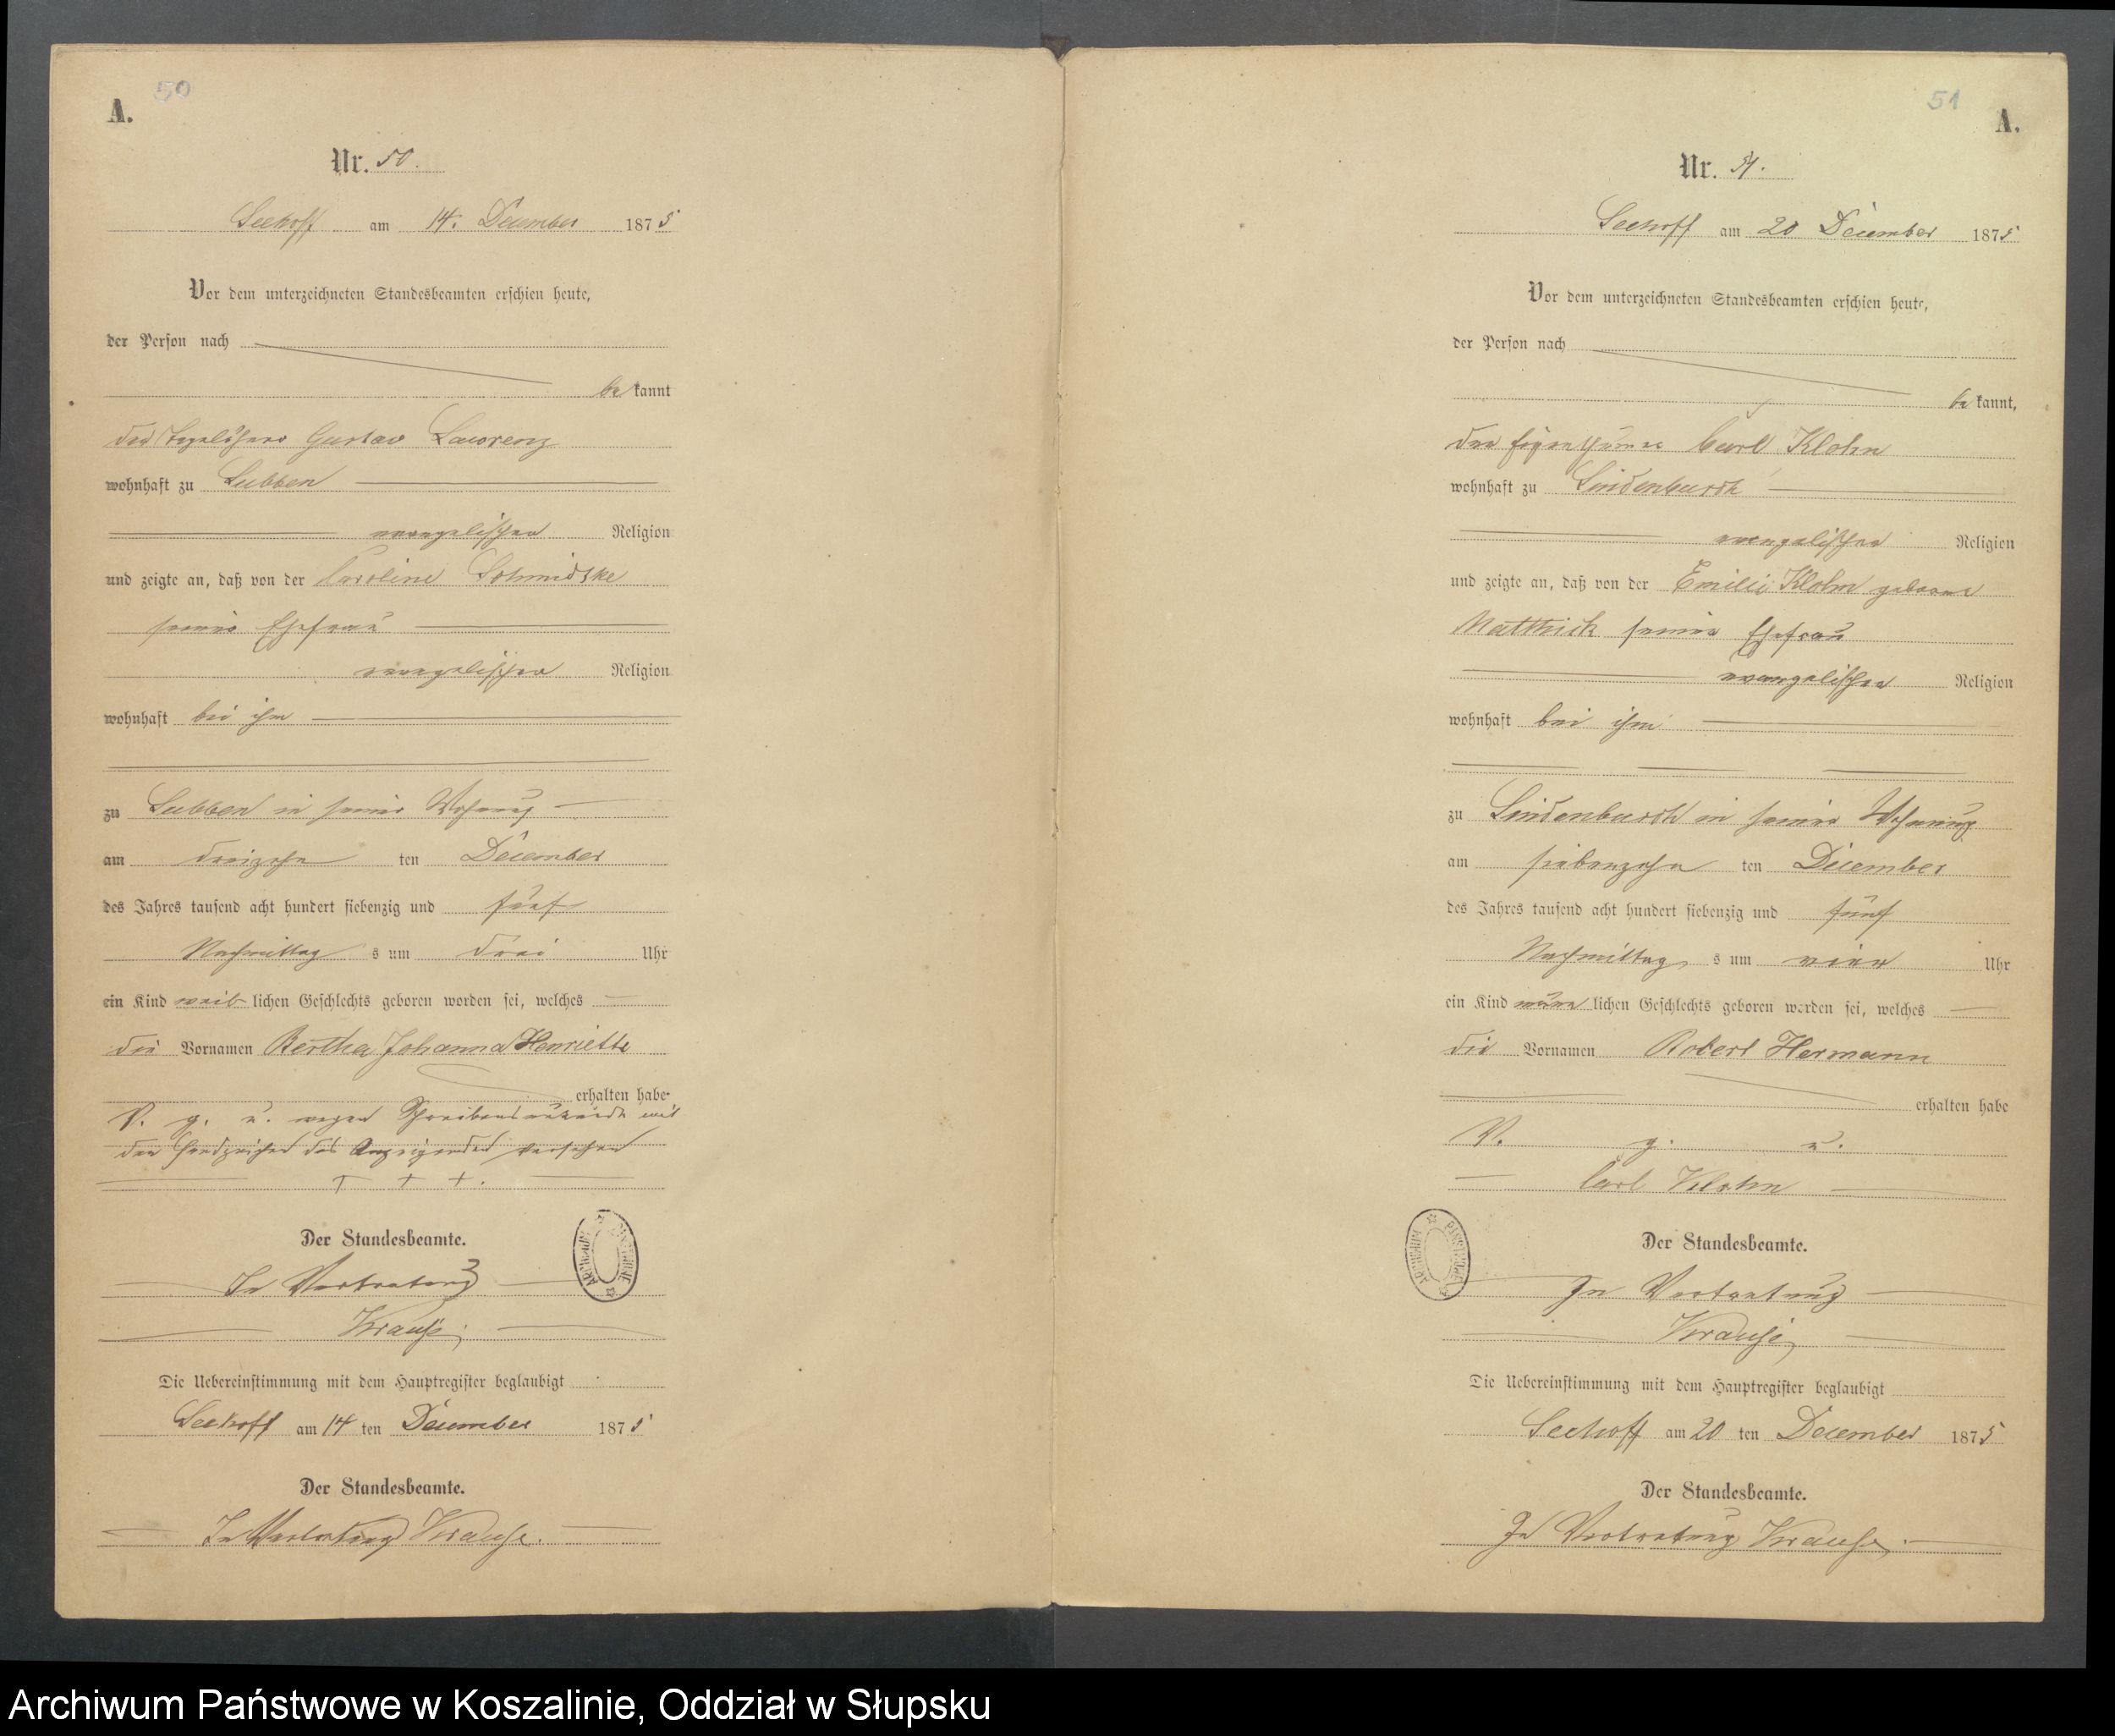 50
A.
Nr. 50.
Seehoff am 14. December 1875
Vor dem unterzeichneten Standesbeamten erschien heute,
der Person nach
be kannt
der Tagelöhner Gustav Lawrenz
wohnhaft zu Lubben
evangelischer Religion
und zeigte an, daß von der Caroline Schmidtke
seiner Ehefrau
evangelischer Religion
wohnhaft bei ihm
zu Lubben in seiner Wohnung
am dreizehn ten December
des Jahres tausend acht hundert siebenzig und fünf
Nachmittag s um drei Uhr
ein Kind weib lichen Geschlechts geboren worden sei, welches
die Vornamen Bertha Johanna Henriette
erhalten habe
V. g. u. wegen Schreibensunkunde mit
den Handzeichen des Anzeigenden versehen
+ + +.
Der Standesbeamte.
In Vertretung
Krause
Die Uebereinstimmung mit dem Hauptregister beglaubigt
Seehoff am 14 ten December 1875
Der Standesbeamte.
In Vertretung Krause.
51
A.
Nr. 51.
Seehoff am 20 December 1875
Vor dem unterzeichneten Standesbeamten erschien heute,
der Person nach
be kannt,
der Eigenthümer Carl Klohn
wohnhaft zu Lindenbusch
evangelischer Religion
und zeigte an, daß von der Emilie Klohn geborene
Matthick seiner Ehefrau
evangelischer Religion
wohnhaft bei ihm
zu Lindenbusch in seiner Wohnung
am siebenzehn ten December
des Jahres tausend acht hundert siebenzig und fünf
Nachmittag s um vier Uhr
ein Kind männ lichen Geschlechts geboren worden sei, welches
die Vornamen Robert Hermann
erhalten habe
V. g. u.
Carl Klohn
Der Standesbeamte.
In Vertretung
Krause
Die Uebereinstimmung mit dem Hauptregister beglaubigt
Seehoff am 20 ten December 1875
Der Standesbeamte.
In Vertretung Krause.
Archiwum Państwowe w Koszalinie, Oddział w Słupsku